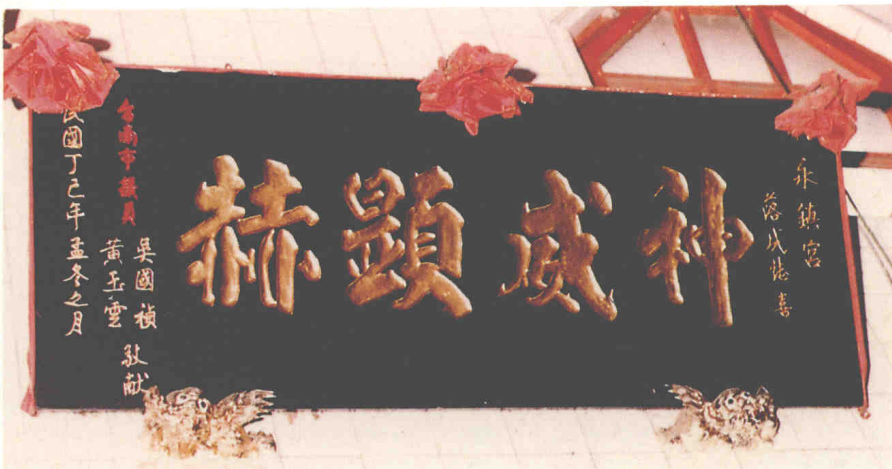 永鎮宮
落成誌喜
神威顕赫
台南市議員
吳國禎
黃玉雲
敬献
民國丁巳年孟冬之月